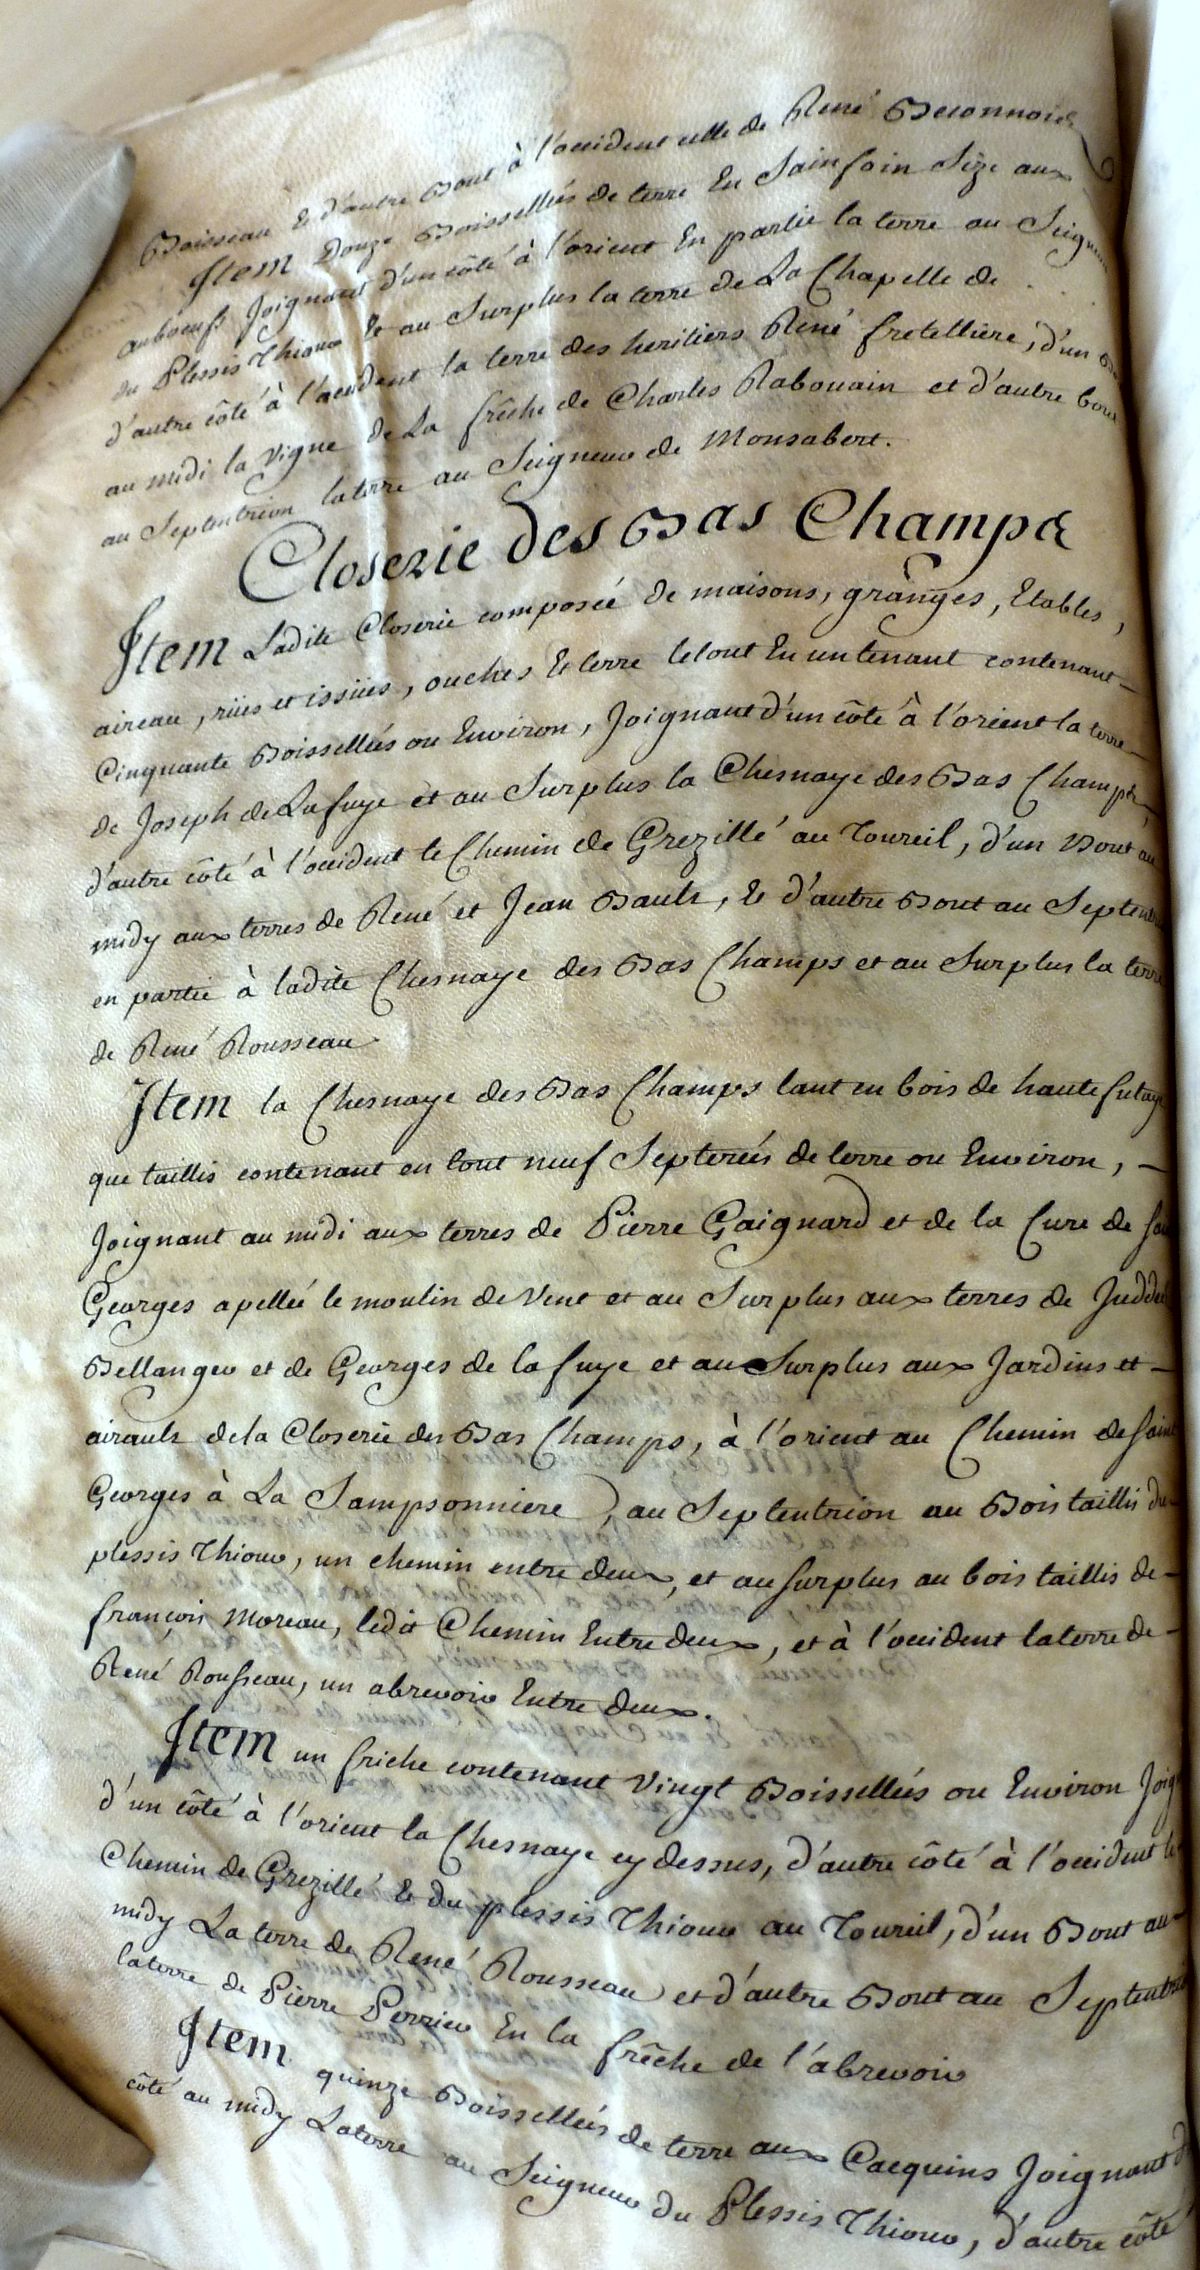 Boisseau & d'autre Bout à l'occident celle de René
Item Douze Boissellées de terre En Sainfoin Size aux
auboeufs Joignant d'un côté à l'orient En partie la terre au Seigneur
du Plessis Thiour & au Surplus la terre de La Chapelle de . . .
d'autre côté à l'occident la terre des heritiers René fretelliere, d'un
au midi la vigne de La frêche de Charles Rabouain et d'autre bout
au Septentrion laterre au Seigneur de Monsabert.
Closerie des Bas Champs
Item Ladite Closerie composée de maisons, granges, Etables,
aireau, rües et issües, ouches & terre letout En un tenant contenant
Cinquante Boissellées ou Environ, Joignant d'un côté à l'orient la terre
de Joseph de Lafuye et au Surplus la Chesnaye des Bas Champs,
d'autre côté à l'occident le Chemin de Grezillé au Toureil, d'un Bout au
midy aux terres de René et Jean Bault, & d'autre Bout au Septentrion
en partie à ladite Chesnaye des Bas Champs et au Surplus la terre
de René Rousseau
Item la Chesnaye des Bas Champs tant en bois de haute futaye
que taillis contenant en tout neuf Septerées de terre ou Environ,
Joignant au midi aux terres de Pierre Gaignard et de la Cure de
Georges apellée le moulin de Vent et au Surplus aux terres de
Bellanger et de Georges de lafuye et au Surplus aux Jardins et
airault dela Closerie des Bas Champs, à l'orient au Chemin de Saint
Georges à La Sampsonniere, au Septentrion au Bois taillis du
plessis Thiour, un chemin entre deux, et au surplus au bois taillis de
françois Moreau, ledit Chemin Entre deux, et à l'occident laterre de
René Rousseau, un abrevoir Entre deux.
Item un friche contenant Vingt Boissellées ou Environ
d'un côté à l'orient la Chesnaye cy dessus, d'autre côté à l'occident le
Chemin de Grezillé & du plessis Thiour au Toureil, d'un Bout au
midy La terre de René Rousseau et d'autre Bout au Septentrion
laterre de Pierre Perrier En la frêche de l'abrevoir
Item quinze Boissellées de terre aux Cacquins Joignant
côté au midy Laterre au Seigneur du Plessis Thiour, d'autre côté